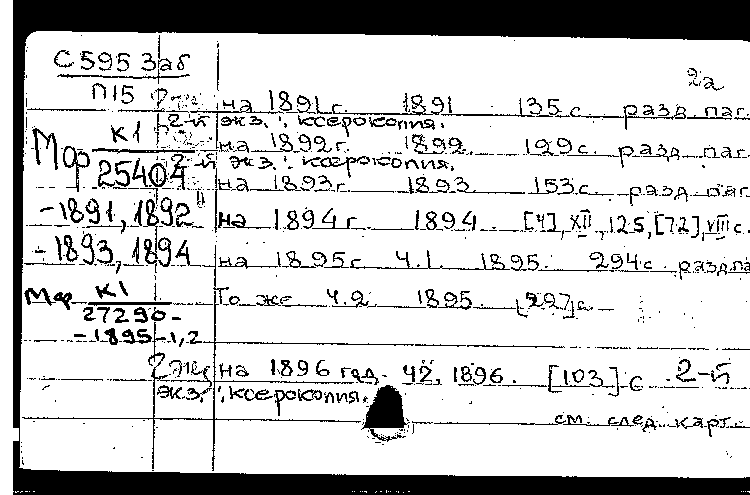 С 595 Заб
2а
П15 2 экз на 1891 г. 1891 135 с. разд. паг.
2-й экз.: ксерокопия.
Мфр К1/25404 на 1892 г. 1892. 129 с. разд. паг.
2-й экз.: ксерокопия.
на 1893 г. 1893. 153 с. разд. паг.
-1891, 1892 на 1894 г. 1894. [4], XII, 125, [72], VIII с.
-1893, 1894 на 1895 г. Ч.1. 1895. 294 с. разд. па
Мфр К1/27290- То же Ч.2 1895. [227] с
-1895-1,2
2 экз на 1896 год. Ч2. 1896. [103] с 2-й
экз.: ксерокопия.
см. след. карт.